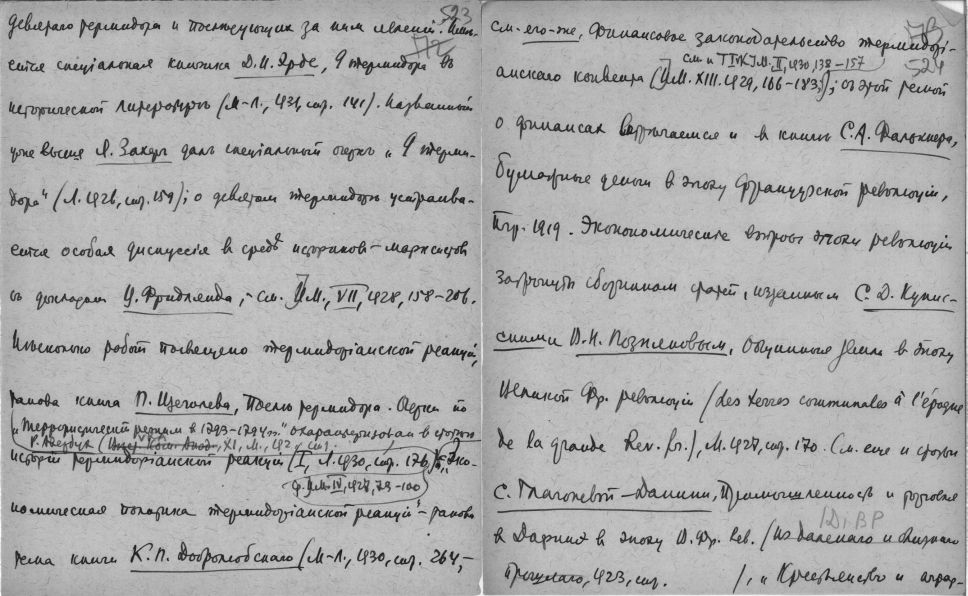 523
72
девятаго термидора и последующих за ним явленій. Име-
ется спеціальная книжка Д. И. Эрде, 9 термидора в
исторической литературѣ (М-Л., 1931, стр. 141). Названный
уже выше Я. Захер дал спеціальный очерк „9 терми-
дора" (Л. 1926, стр. 159); о девятом термидорѣ устраива-
ется особая дискуссія в средѣ историков-марксистов
съ докладом Ц. Фридлянда, - см. И.М., VII, 1928, 158-206.
Нѣсколько работ посвещено термидоріанской реакціи,
такова книга П. Щеголева, Послѣ термидора. Очерки по
„Террористическій режим в 1793-1794 г." охарактеризован в статьѣ
XI, М., 192 , стр.
исторіи термидоріанской реакціи (I, Л. 1930, стр. 176). „Эко-
ср. И.М. IV, 1927, 73-100
номическая политика термидоріанской реакціи" - такова
тема книги К. П. Добролюбскаго (М-Л., 1930, стр. 264,-
73
524
см. его-же, Финансовое законодательство термидорі-
см. и II, 1930, 138-157
анскаго конвента (И.М. XIII. 1929, 166-183); съ этой темой
о финансах встрѣчаемся и в книгѣ С. А. Фалькнера,
Бумажные деньги в эпоху французской революціи,
Птр. 1919. Экономическіе вопросы эпохи революціи
затронуты сборником статей, изданным С. Д. Кунис-
ским и В. Н. Позняковым, Общинные земли в эпоху
Великой Фр. революціи (Les terres communales à l'époque
de la grande Rev. fr.), М. 1927, стр. 170. См. еще и статьи
С. Глаголевой-Данини, Промышленность и торговля
в Дофинэ в эпоху В. Фр. Рев. (Из далекаго и близкаго
прошлаго, 1923, стр. ), „Крестьянство и аграр-